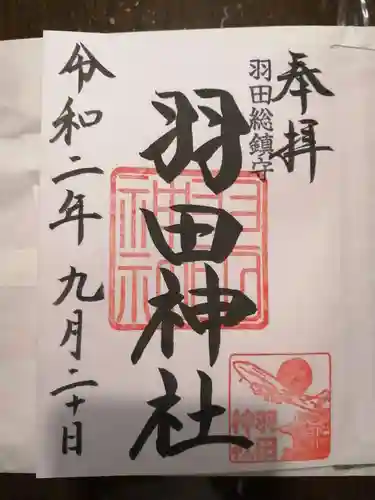 奉拝
羽田総鎮守
羽田神社
令和二年九月二十日
羽田
神社
羽田
神社